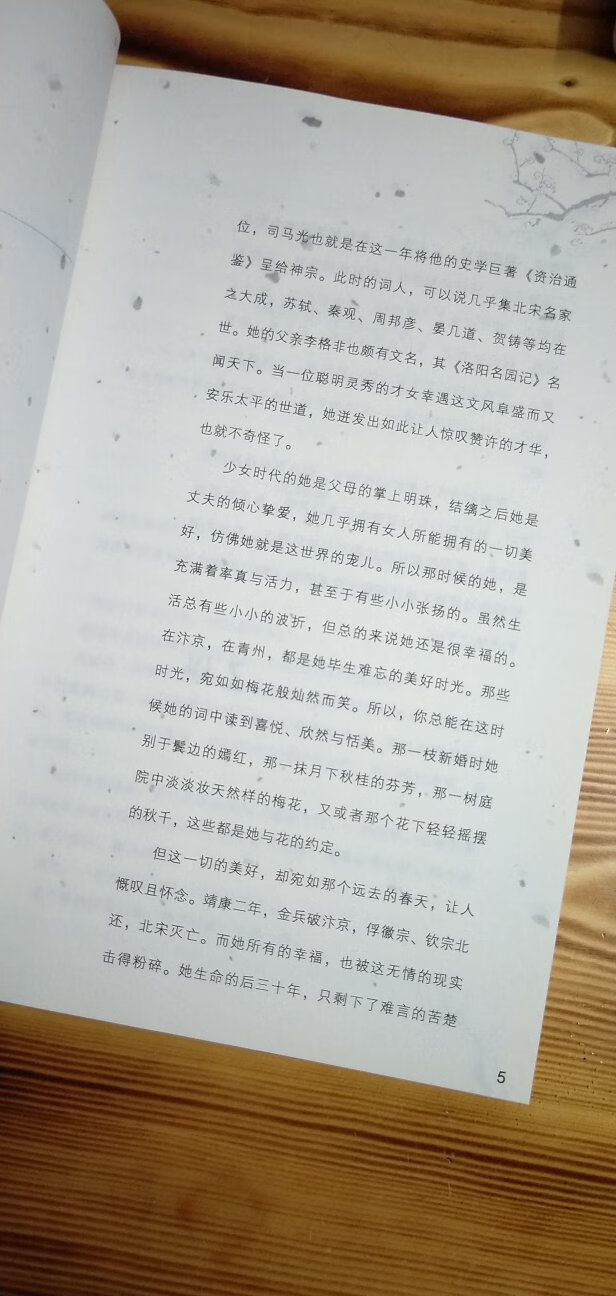 位，司马光也就是在这一年将他的史学巨著《资治通
鉴》呈给神宗。此时的词人，可以说几乎集北宋名家
之大成，苏轼、秦观、周邦彦、晏几道、贺铸等均在
世。她的父亲李格非也颇有文名，其《洛阳名园记》名
闻天下。当一位聪明灵秀的才女幸遇这文风阜盛而又
安乐太平的世道，她迸发出如此让人惊叹赞许的才华，
也就不奇怪了。
少女时代的她是父母的掌上明珠，结缡之后她是
丈夫的倾心挚爱，她几乎拥有女人所能拥有的一切美
好，仿佛她就是这世界的宠儿。所以那时候的她，是
充满着率真与活力，甚至于有些小小张扬的。虽然生
活总有些小小的波折，但总的来说她还是很幸福的。
在汴京，在青州，都是她毕生难忘的美好时光。那些
时光，宛如如梅花般灿然而笑。所以，你总能在这时
候她的词中读到喜悦、欣然与恬美。那一枝新婚时她
别于鬓边的嫣红，那一抹月下秋桂的芬芳，那一树庭
院中淡淡妆天然样的梅花，又或者那个花下轻轻摇摆
的秋千，这些都是她与花的约定。
但这一切的美好，却宛如那个远去的春天，让人
慨叹且怀念。靖康二年，金兵破汴京，俘徽宗、钦宗北
还，北宋灭亡。而她所有的幸福，也被这无情的现实
击得粉碎。她生命的后三十年，只剩下了难言的苦楚
5